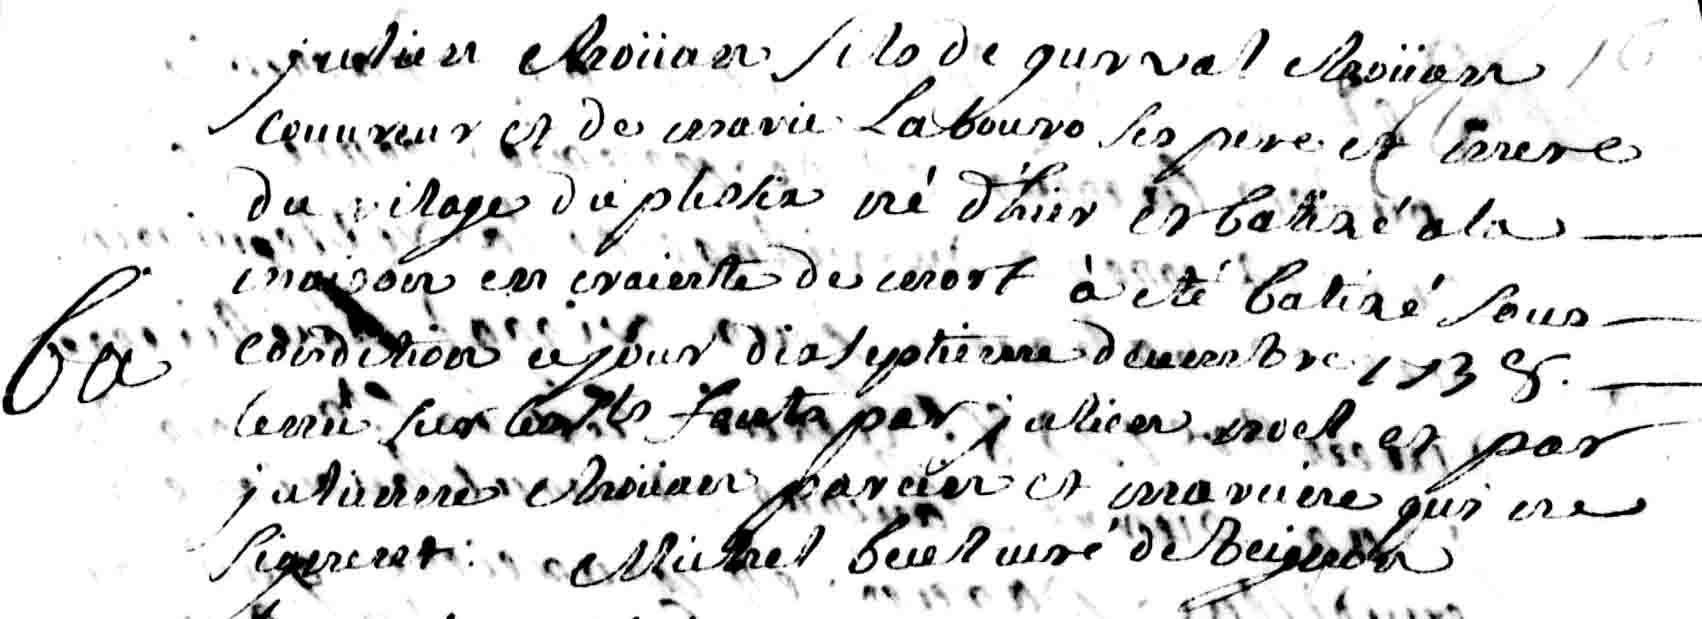 julien Choüan fils de gurval Choüan
couureur et de marie Labouro ses pere et mere
du vilage du plessix né d'hier et batizé a la
maison en crainte de mort à eté batizé sous
condition ce jour dix septieme decembre 1738.
tenu sur les fonts par julien noel et par
julienne Choüan parein et mareine qui ne
signent. Michel beul curé de Beignon
ba